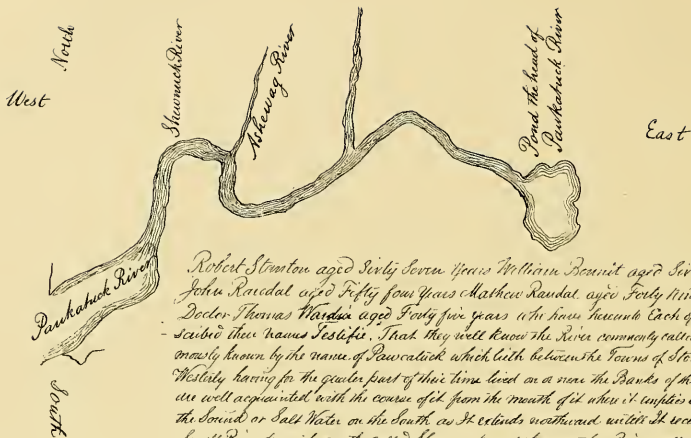 North
West
Shunuck River
Ashewag River
Pond the head of
Paukatuck River
East
Paukatuck River
South
Robert Stanton aged Sixty Seven Years William Bennit aged
John Randal aged Fifty four Years Mathew Randal aged Forty
Docter Thomas aged Forty five years who have hereunto Each of
scribed their names Testifie. That they well know the River commonly
monly known by the name of Pawcatuck which lieth between the Towns of
Westerly having for the greater part of their time lived on or near the Banks of
are well acquainted with the course of it from the mouth of it where it empties
the Sound or Salt Water on the South as It extends northward untill It